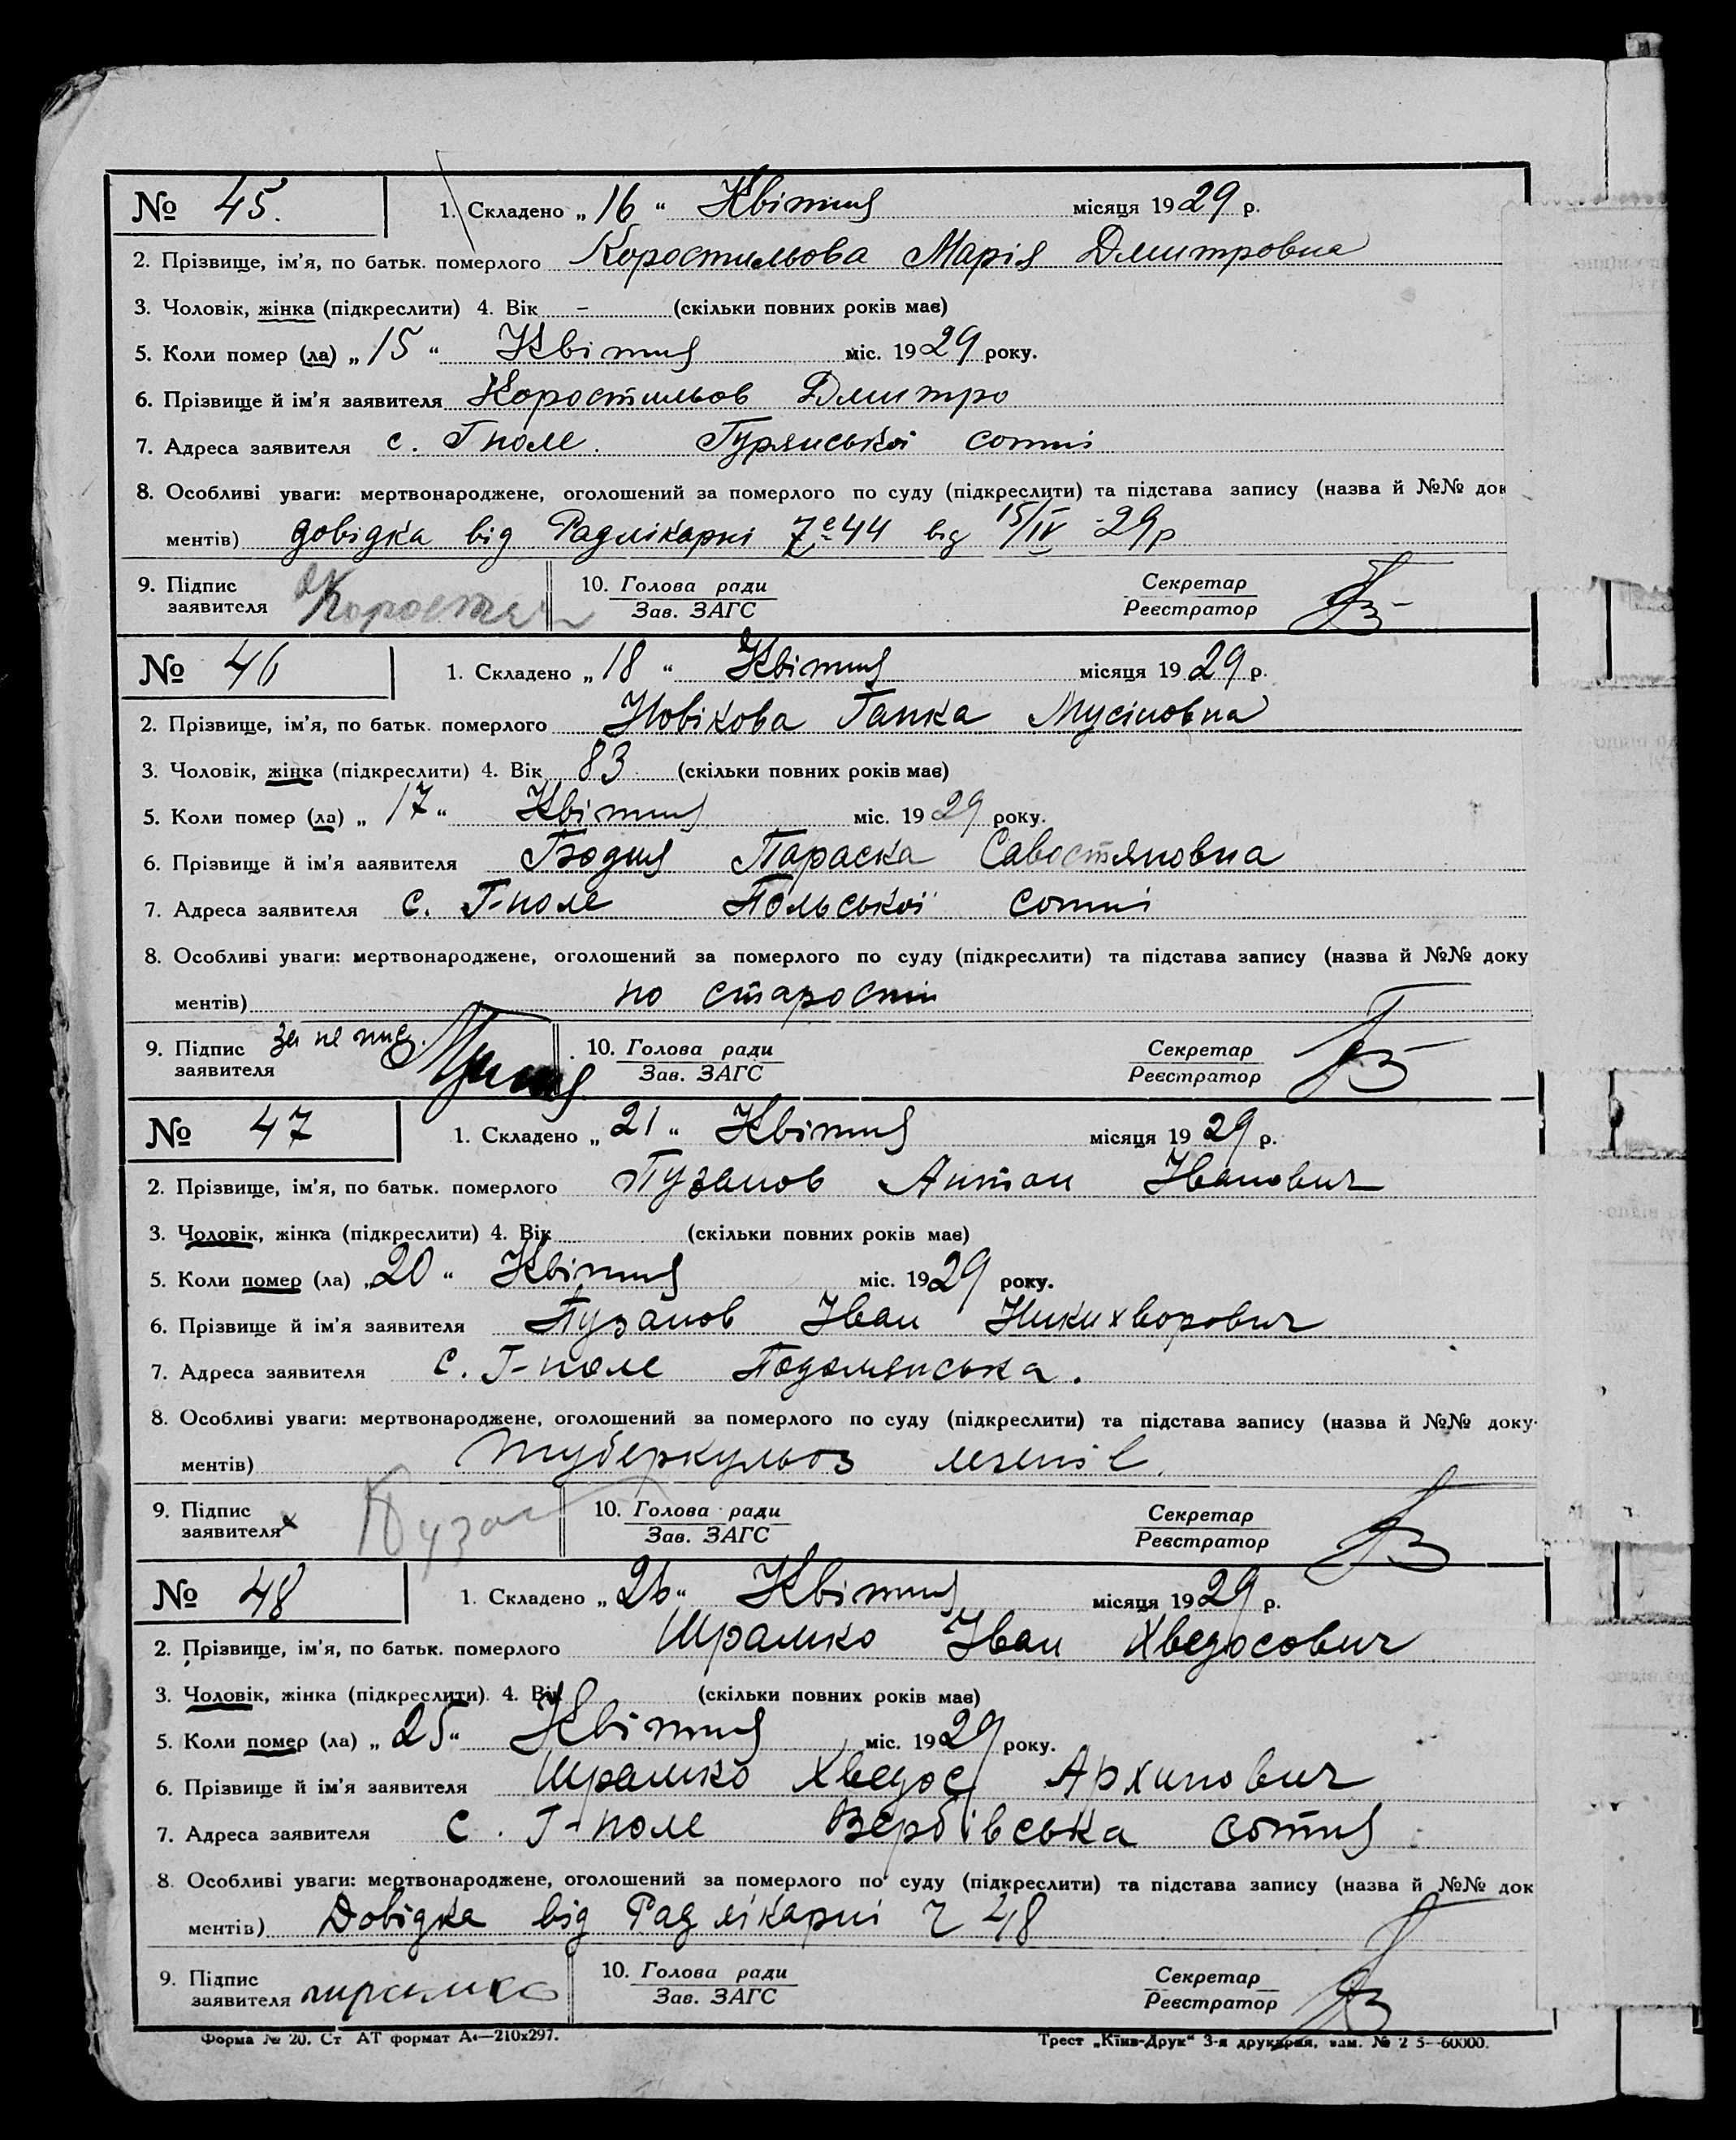 № 45. 1. Складено „16“ Квітня місяця 1929 р.
2. Прізвище, ім'я, по батьк. померлого Коростильова Марія Дмитровна
3. Чоловік, жінка (підкреслити) 4. Вік - (скільки повних років має)
5. Коли помер (ла) „15“ Квітня міс. 1929 року.
6. Прізвище й ім'я заявителя Коростильов Дмитро
7. Адреса заявителя с. Гполе. Гурянської сотні
8. Особливі уваги: мертвонароджене, оголошений за померлого по суду (підкреслити) та підстава запису (назва й №№ док
ментів) довідка від Радлікарні 44 від 15/IV 29р
9. Підпис заявителя 10. Голова ради Зав. ЗАГС Секретар Реєстратор
№ 46 1. Складено „18“ Квітня місяця 1929 р.
2. Прізвище, ім'я, по батьк. померлого Новікова Ганка Мусіновна
3. Чоловік, жінка (підкреслити) 4. Вік 83 (скільки повних років має)
5. Коли помер (ла) „17“ Квітня міс. 1929 року.
6. Прізвище й ім'я аявителя Параска Савостяновна
7. Адреса заявителя с. Г-поле Польської сотні
8. Особливі уваги: мертвонароджене, оголошений за померлого по суду (підкреслити) та підстава запису (назва й №№ доку
ментів) по старости
9. Підпис заявителя за не пис. 10. Голова ради Зав. ЗАГС Секретар Реєстратор
№ 47 1. Складено „21“ Квітня місяця 1929 р.
2. Прізвище, ім'я, по батьк. померлого Пузанов Антон Іванович
3. Чоловік, жінка (підкреслити) 4. Вік (скільки повних років має)
5. Коли помер (ла) „20“ Квітня міс. 1929 року.
6. Прізвище й ім'я заявителя Пузанов Іван Никихворович
7. Адреса заявителя с. Г-поле Подолянська.
8. Особливі уваги: мертвонароджене, оголошений за померлого по суду (підкреслити) та підстава запису (назва й №№ доку-
ментів) туберкульоз легенів.
9. Підпис заявителя 10. Голова ради Зав. ЗАГС Секретар Реєстратор
№ 48 1. Складено „26“ Квітня місяця 1929 р.
2. Прізвище, ім'я, по батьк. померлого Шрамко Іван Хведосович
3. Чоловік, жінка (підкреслити). 4. Вік (скільки повних років має)
5. Коли помер (ла) „25“ Квітня міс. 1929 року.
6. Прізвище й ім'я заявителя Шрамко Хведос Архипович
7. Адреса заявителя с. Г-поле Вербівська сотня
8. Особливі уваги: мертвонароджене, оголошений за померлого по суду (підкреслити) та підстава запису (назва й №№ док
ментів) Довідка від Рад лікарні ч 48
9. Підпис заявителя шрамко 10. Голова ради Зав. ЗАГС Секретар Реєстратор
Форма № 20. Ст АТ формат А4—210х297. Трест „Київ-Друк“ 3-я друкарня, зам. № 2 5—60000.